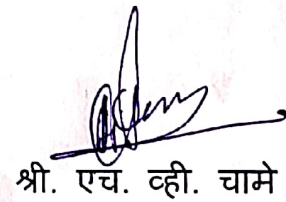 श्री. एच. व्ही. चामे